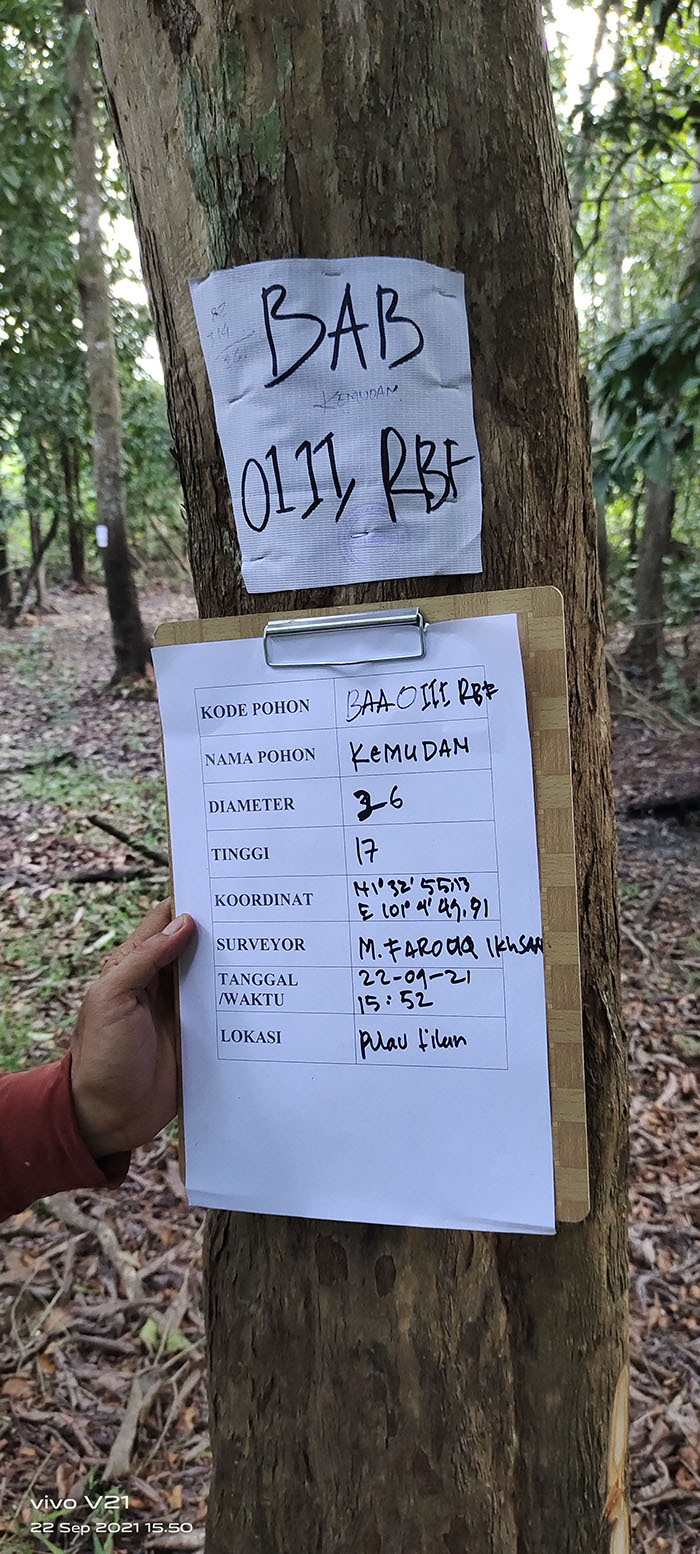 BAB
KEMUDAN
0111, RBF
KODE POHON BAA 0111 RBF
NAMA POHON KEMUDAN
DIAMETER 26
TINGGI 17
KOORDINAT N 1° 32' 55,13
E 101° 4' 49,91
SURVEYOR M. FAROUQ IKHSAN
TANGGAL 22-09-21
/WAKTU 15:52
LOKASI pulau tilan
vivo V21
22 Sep 2021 15.50